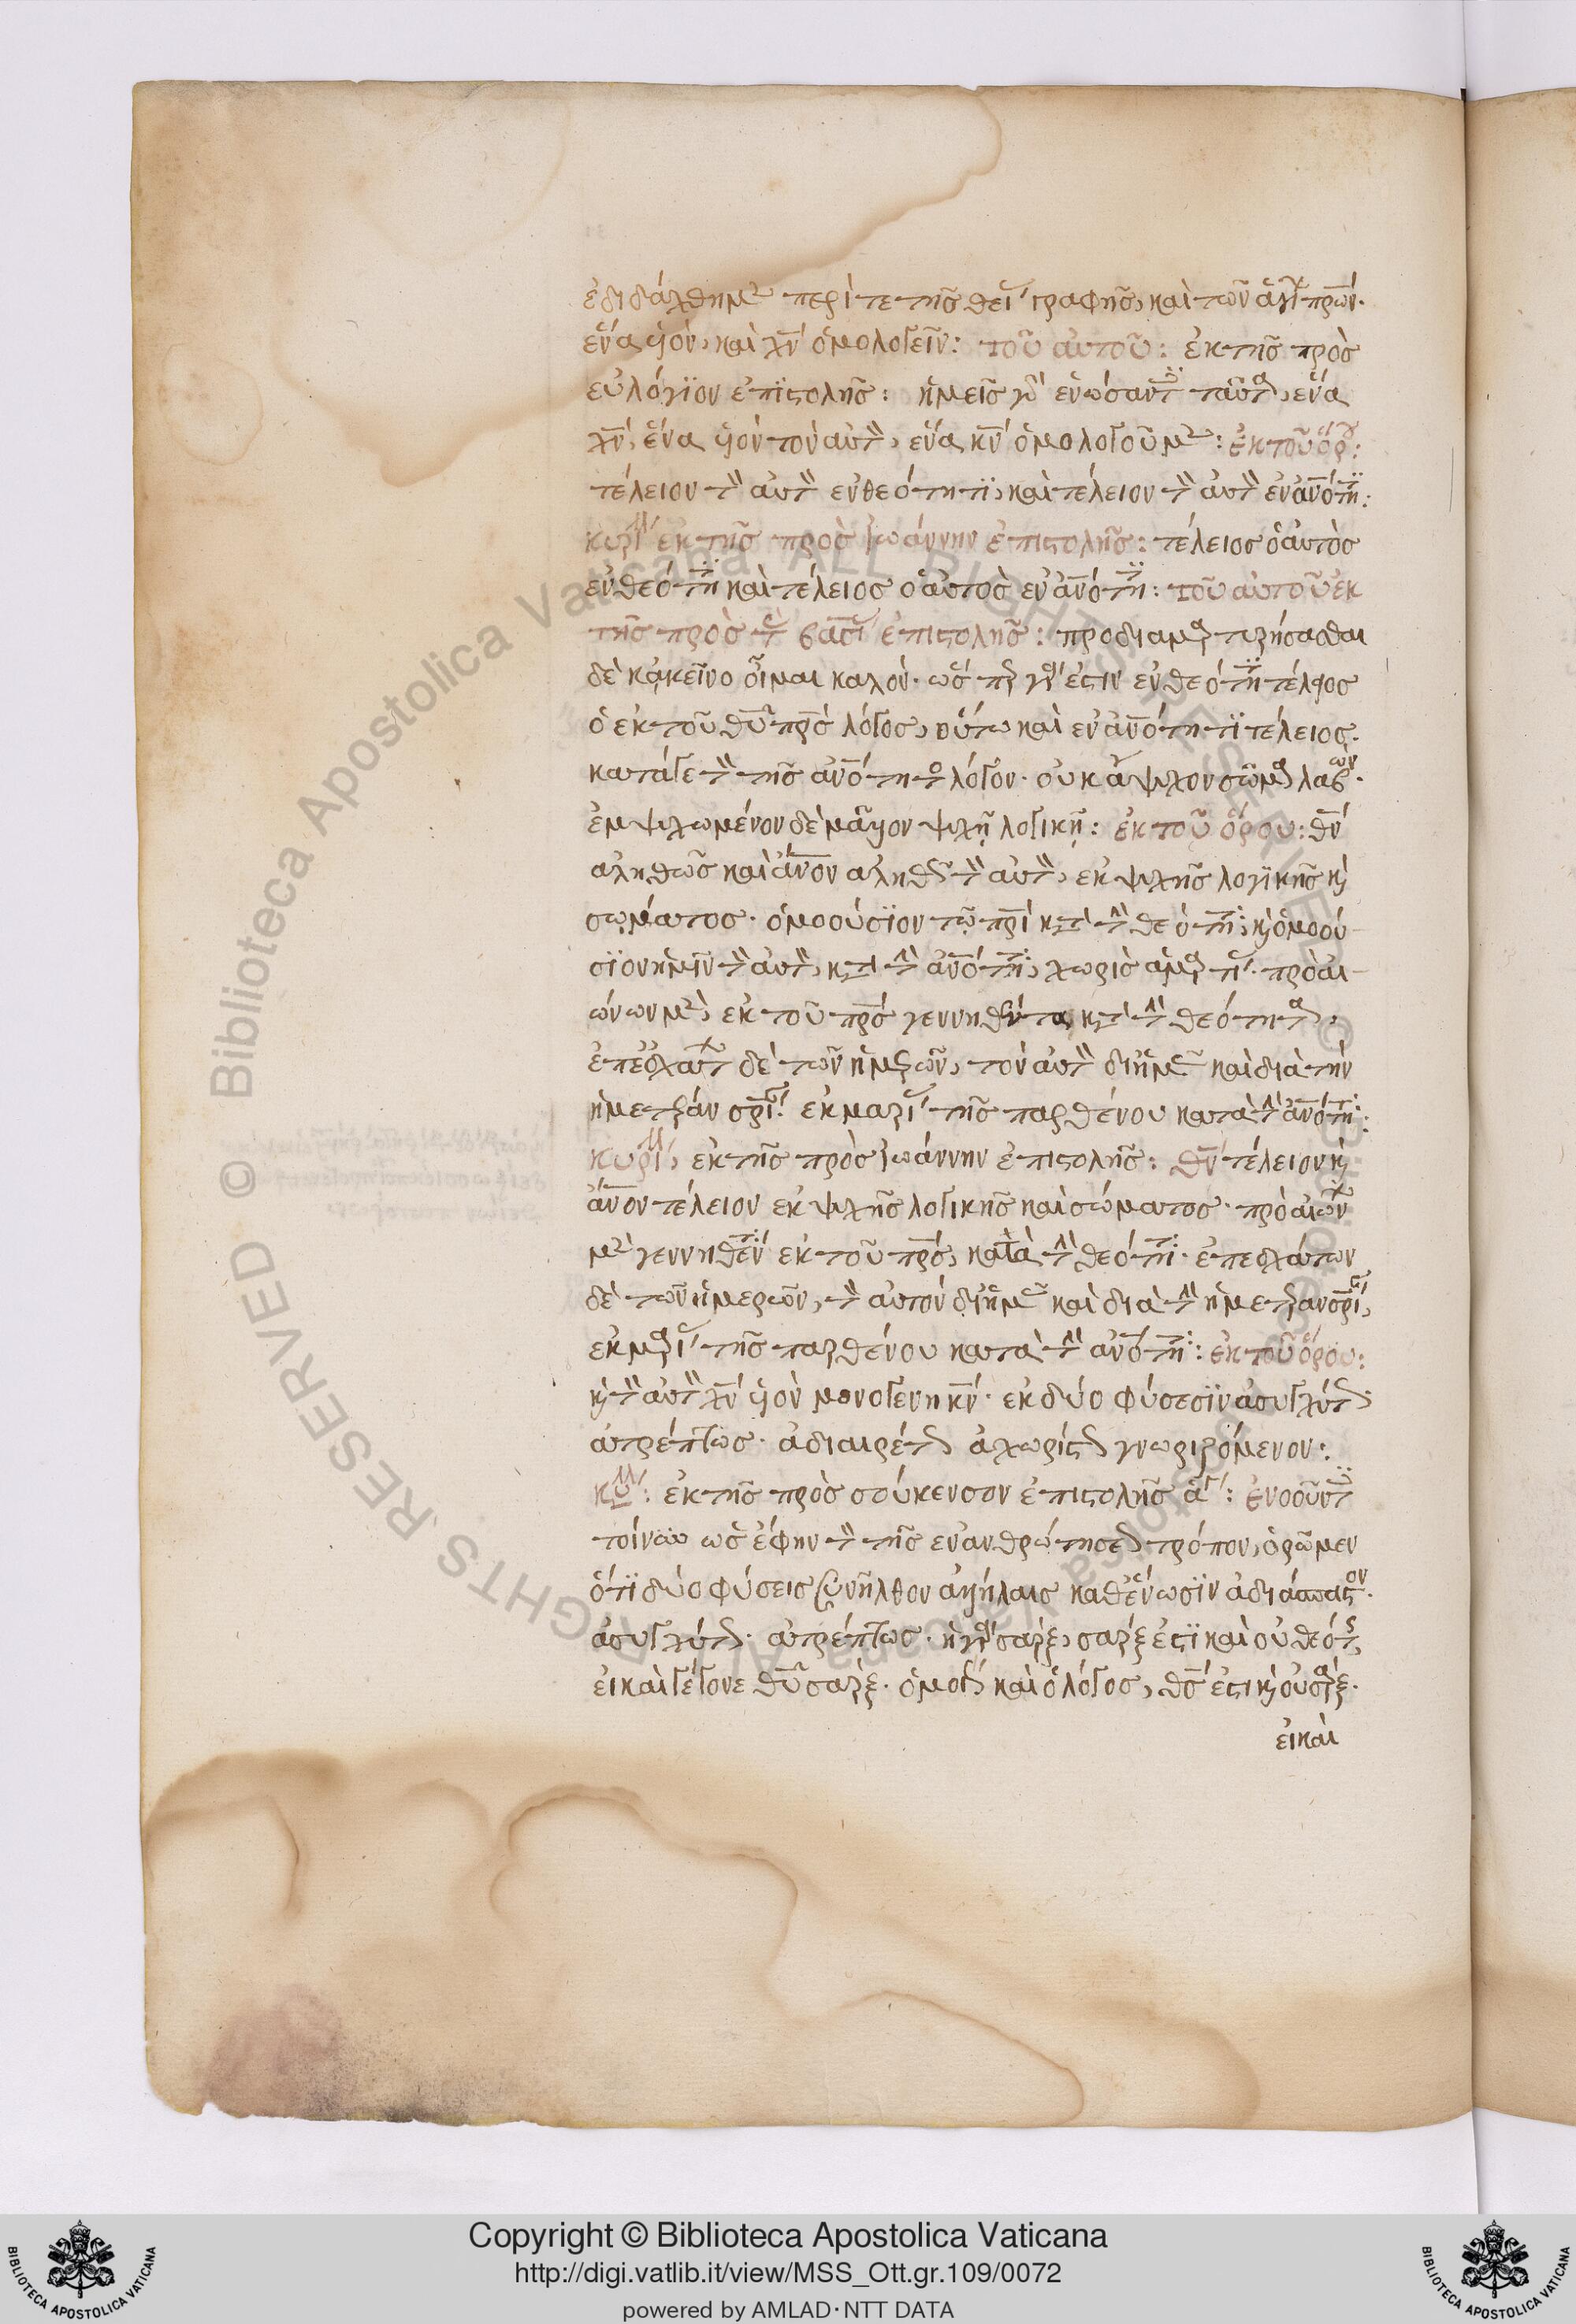 ἐδιδάχθημεν περί τε τῆς θείας γραφῆς, καὶ τῶν ἁγίων πρων·
ἕνα υἱὸν, καὶ χν ὁμολογεῖν: τοῦ αὐτοῦ: ἐκ τῆς πρὸς
εὐλόγιον ἐπιστολῆς: ἡμεῖς γὰρ ἑνώσαντες ταῦτα, ἕνα
χν, ἕνα υἱὸν τὸν αὐτὸν, ἕνα κν ὁμολογοῦμεν: ἐκ τοῦ ὅρου:
τέλειον τὸν αὐτὸν ἐν θεότητι, καὶ τέλειον τὸν αὐτὸν ἐν ἀνότητι:
κυρίλλου ἐκ τῆς πρὸς ἰωάννην ἐπιστολῆς: τέλειος ὁ αὐτὸς
ἐν θεότητι καὶ τέλειος ὁ αὐτὸς ἐν ἀνότητι: τοῦ αὐτοῦ ἐκ
τῆς πρὸς τὸν βασιλέα ἐπιστολῆς: προδιαμαρτυρήσασθαι
δὲ κἀκεῖνο οἶμαι καλόν· ὥσπερ γάρ ἐστιν ἐν θεότητι τέλειος
ὁ ἐκ τοῦ θυ πρς λόγος, οὕτω καὶ ἐν ἀνότητι τέλειος·
κατά γε τὸν τῆς ἀνότητος λόγον· οὐκ ἄψυχον σῶμα λαβών·
ἐμψυχωμένον δὲ μᾶλλον ψυχῇ λογικῇ: ἐκ τοῦ ὅρου: θν
ἀληθῶς καὶ ἄνον ἀληθῶς τὸν αὐτὸν, ἐκ ψυχῆς λογικῆς καὶ
σώματος· ὁμοούσιον τῷ πρι κατὰ τὴν θεότητα, καὶ ὁμοού-
σιον ἡμῖν τὸν αὐτὸν, κατὰ τὴν ἀνότητα, χωρὶς ἁμαρτίας· πρὸ αἰ-
ώνων μὲν, ἐκ τοῦ πρς γεννηθέντα, κατὰ τὴν θεότητα,
ἐπ' ἐσχάτων δὲ τῶν ἡμερῶν, τὸν αὐτὸν δι' ἡμᾶς καὶ διὰ τὴν
ἡμετέραν σρίαν ἐκ μαρίας τῆς παρθένου κατὰ τὴν ἀνότητα:
κυρίλλου, ἐκ τῆς πρὸς ἰωάννην ἐπιστολῆς: θν τέλειον καὶ
ἄνον τέλειον ἐκ ψυχῆς λογικῆς καὶ σώματος· πρὸ αἰώνων
μὲν γεννηθέντα ἐκ τοῦ πρς, κατὰ τὴν θεότητα· ἐπ' ἐσχάτων
δὲ τῶν ἡμερῶν, τὸν αὐτὸν δι' ἡμᾶς καὶ διὰ τὴν ἡμετέραν σρίαν,
ἐκ μαρίας τῆς παρθένου κατὰ τὴν ἀνότητα: ἐκ τοῦ ὅρου:
καὶ τὸν αὐτὸν χν υἱὸν μονογενῆ κν· ἐκ δύο φύσεσιν ἀσυγχύτως
ἀτρέπτως· ἀδιαιρέτως ἀχωρίστως γνωριζόμενον:
κυ: ἐκ τῆς πρὸς σούκενσον ἐπιστολῆς α: ἐνοοῦντες
τοίνυν ὡς ἔφην τὸν τῆς ἐνανθρωπήσεως τρόπον, ὁρῶμεν
ὅτι δύο φύσεις συνῆλθον ἀλλήλαις καθ' ἕνωσιν ἀδιάσπαστον·
ἀσυγχύτως· ἀτρέπτως· ἡ γὰρ σάρξ, σάρξ ἐστι καὶ οὐ θεότης
εἰ καὶ γέγονε θυ σάρξ· ὁμοίως καὶ ὁ λόγος, θς ἐστι καὶ οὐ σάρξ·
εἰ καὶ
Copyright © Biblioteca Apostolica Vaticana
http://digi.vatlib.it/view/MSS_Ott.gr.109/0072
powered by AMLAD·NTT DATA